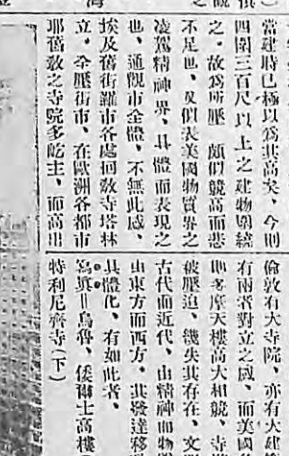 當建時已極以爲其高矣、今則
四圍三百尺以上之建物圍繞
之、故爲所壓、頗似競高而悲
不足也、又似表美國物質界之
凌駕精神界、具體而表現之
也、通觀市全體、不無此感、
埃及舊街雖市各處回敎寺塔林
立、卒壓街市、在歐洲各都市
耶舊敎之寺院多屹主、而高出
倫敦有大寺院、亦有大建
有兩者對立之感、而美國
則多摩天樓高大相競、寺
被壓迫、幾失其存在、文
古代而近代、由精神而物
由東方而西方、其發達移
具體化、有如此者、
寫眞＝烏魯、倭爾士高樓
特利尼齊寺(下)